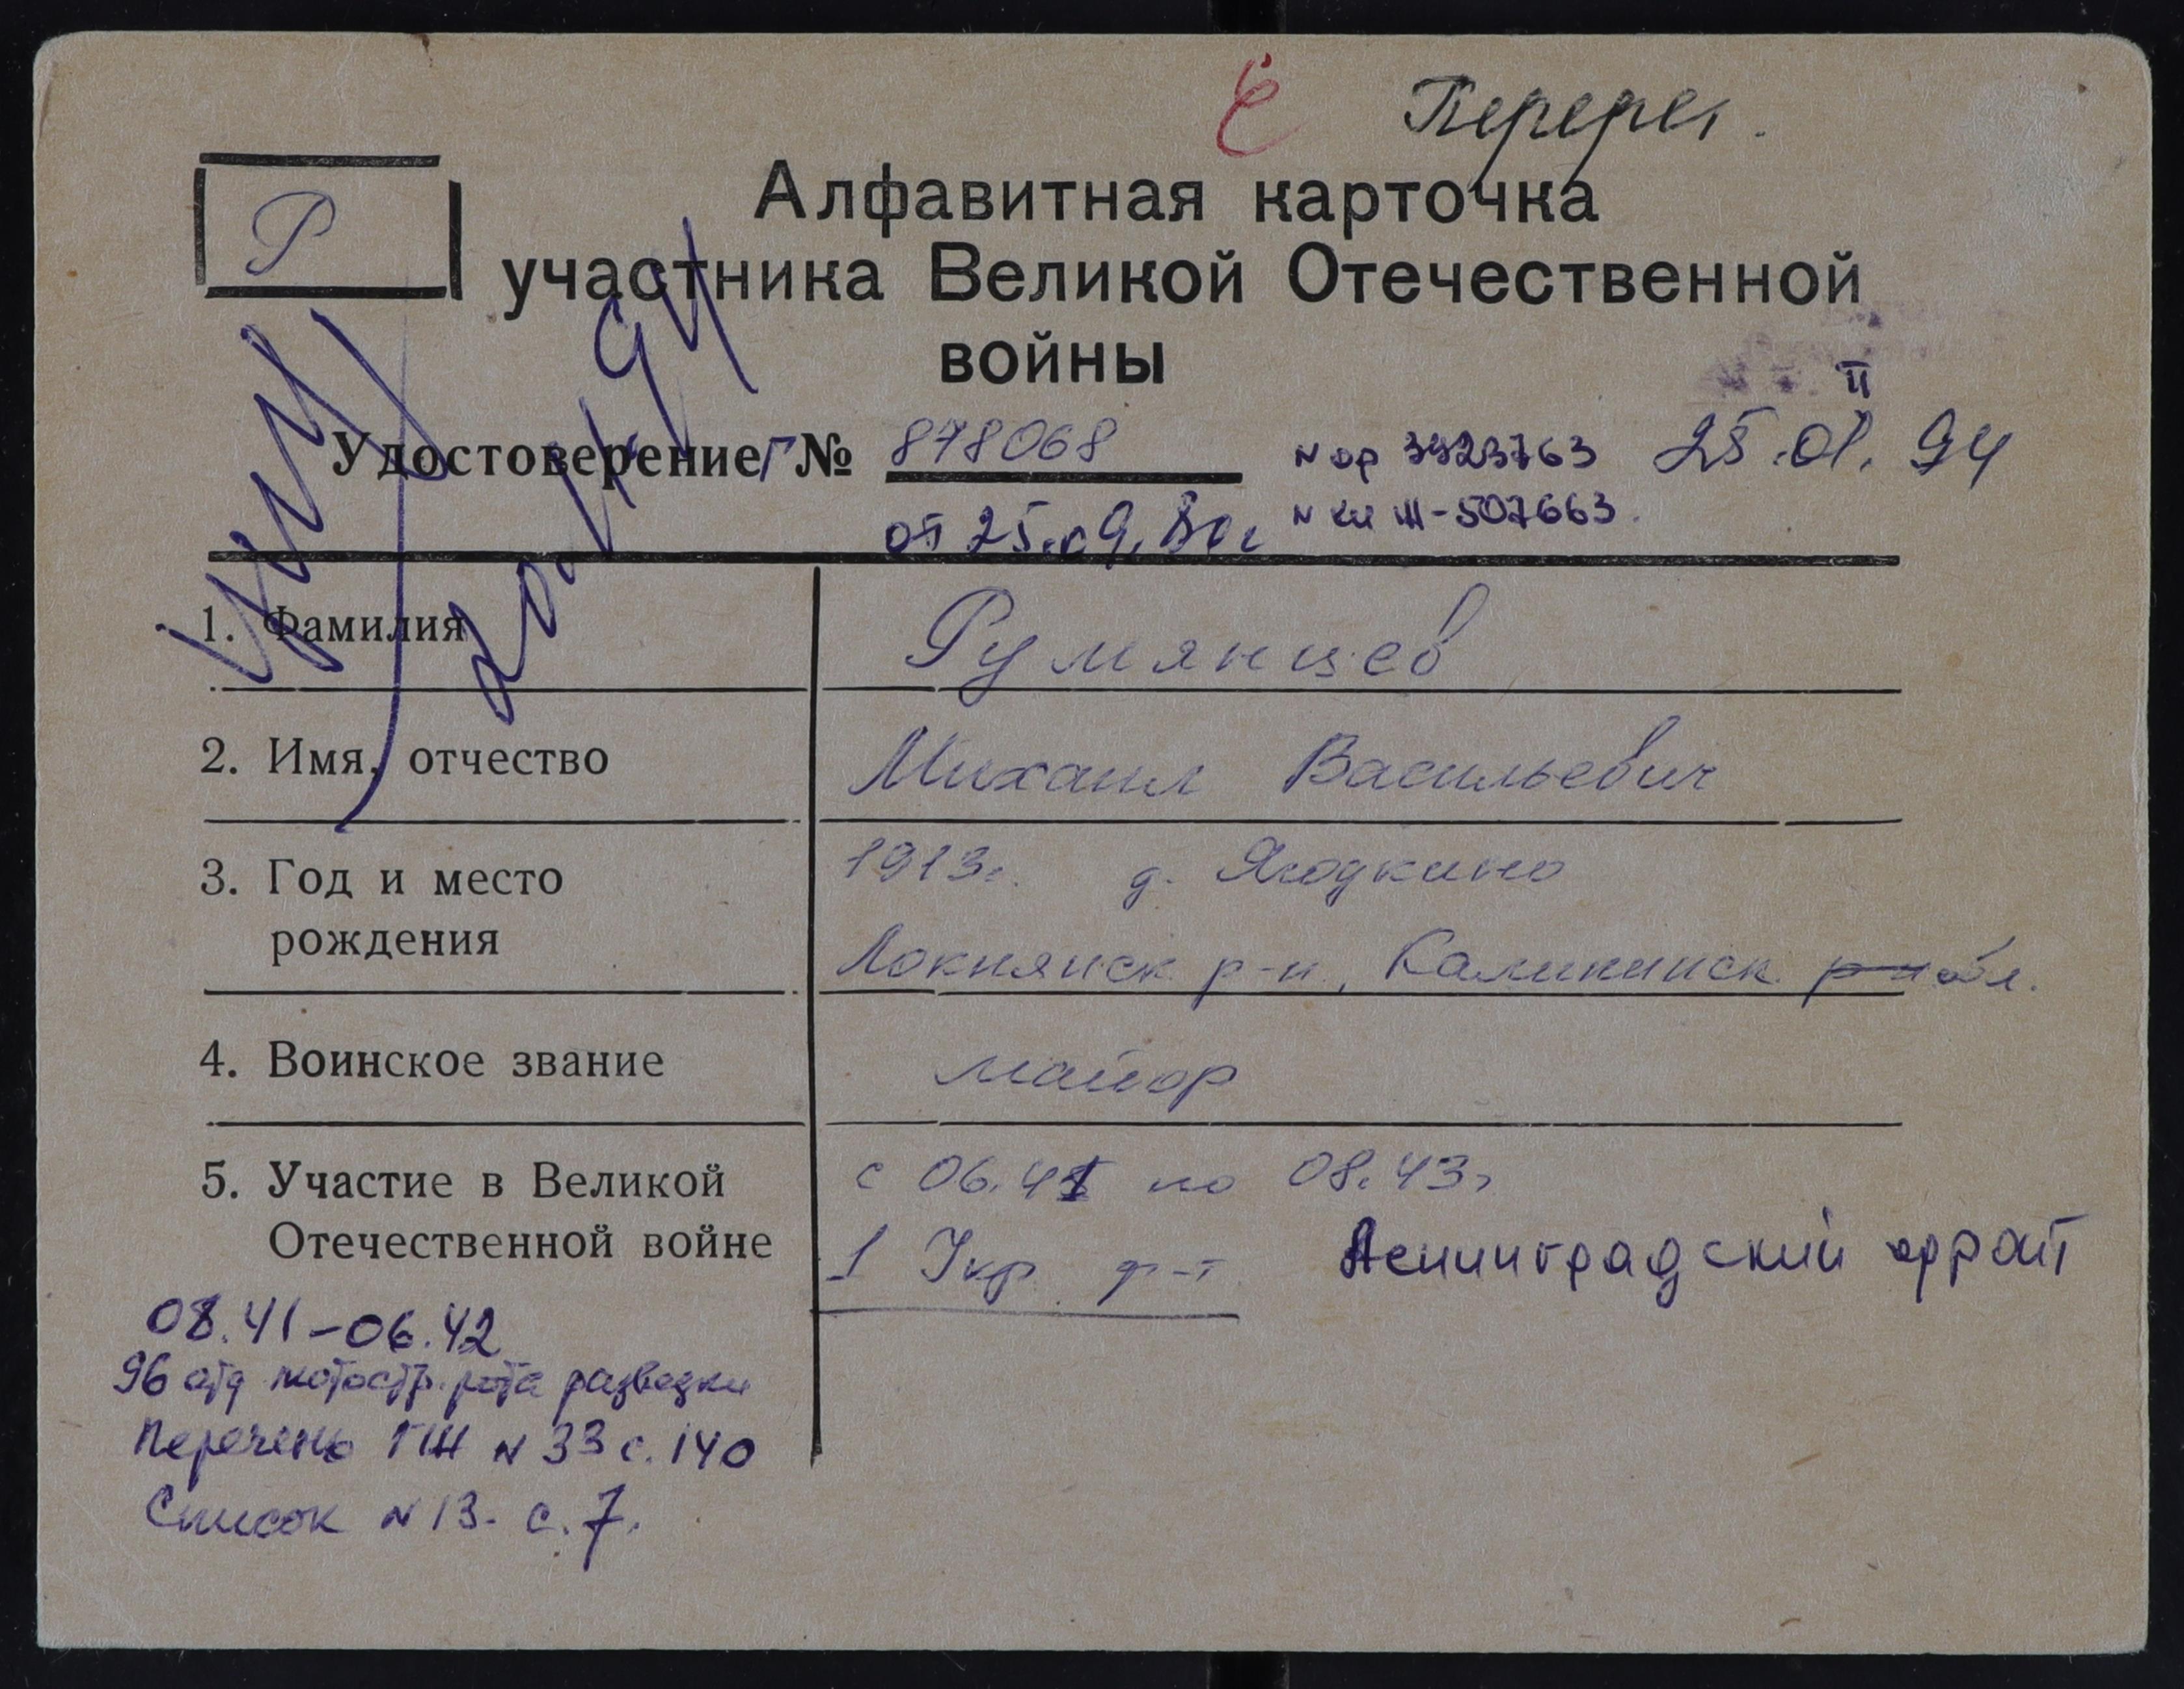 Перерег.
Р
Алфавитная карточка
участника Великой Отечественной
войны
II
Удостоверение Г № 878068
N ор 3923763 25.01.94
от 25.09.80г N кн Ш-507663.
1. Фамилия Румянцев
2. Имя, отчество Михаил Васильевич
3. Год и место 1913г. д. Ягодкино
рождения Локнянск р-н, Калининск р-н обл.
4. Воинское звание майор
5. Участие в Великой с 06.41 по 08.43г
Отечественной войне 1 Укр ф-т Ленинградский фронт
08.41-06.42
96 отд мотостр. рота разведки
Перечень ГШ N 33 с. 140
Список N 13. с. 7.